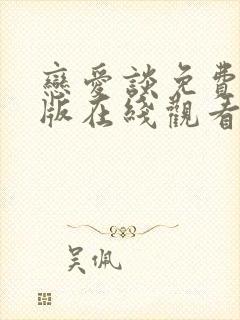 戀愛談免費
版在綫觀看
吴佩